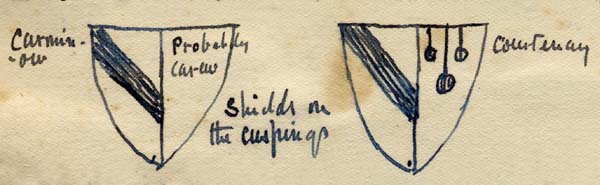 Carmin-
-ow
Probably
Carew
Shields on
the cuspings
Courtenay